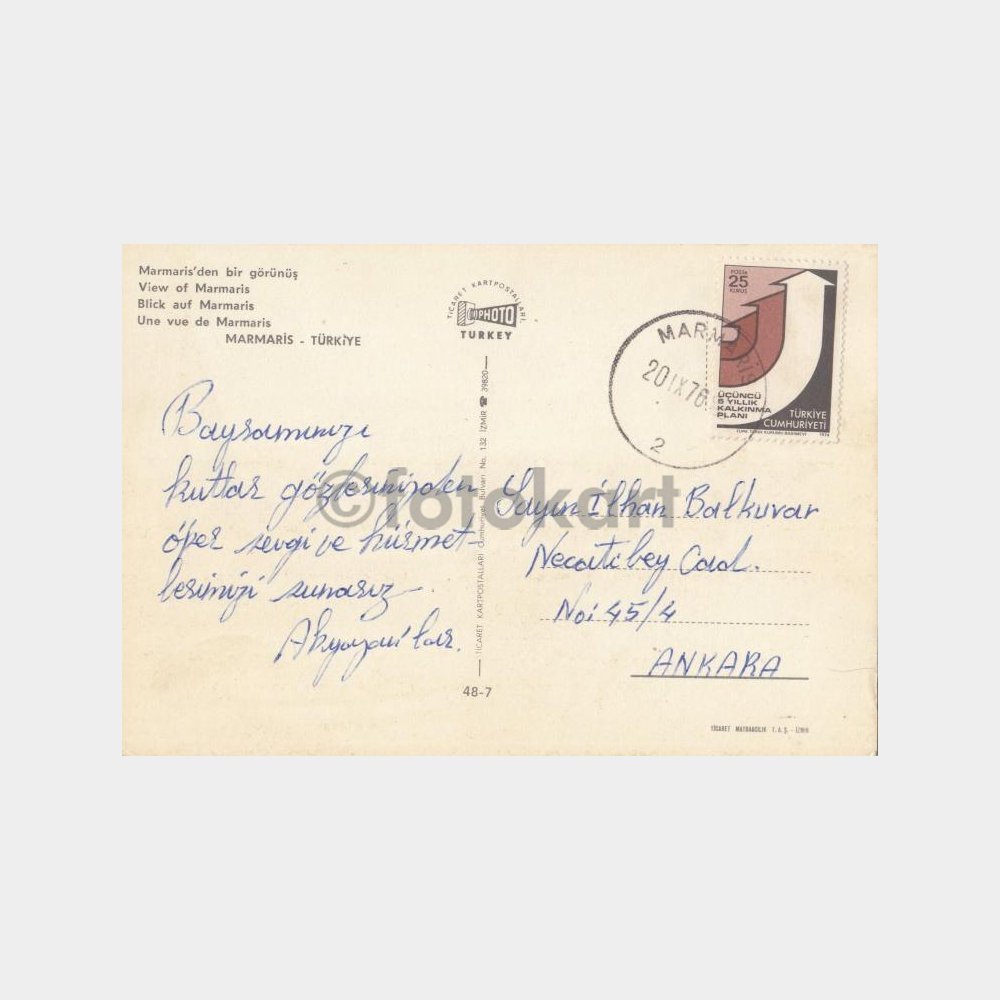 Marmaris'den bir görünüş
View of Marmaris
Blick auf Marmaris
Une vue de Marmaris
MARMARİS - TÜRKİYE
TİCARET KARTPOSTALLARI
PHOTO
TURKEY
MARMARİS
20 IX 76
2
POSTA
25
KURUŞ
ÜÇÜNCÜ
5 YILLIK
KALKINMA
PLANI
TÜRKİYE
CUMHURİYETİ
Bayramınızı
kutlar gözlerinizden
öper sevgi ve hürmet-
lerimizi sunarız
©fotokart
Sayın İlhan Balkuvar
Necatibey Cad.
No: 45/4
ANKARA
TİCARET KARTPOSTALLARI Cumhuriyet Bulvarı No. 132 İZMİR ☎ 39820
48-7
TİCARET MATBAACILIK T.A.Ş. - İZMİR